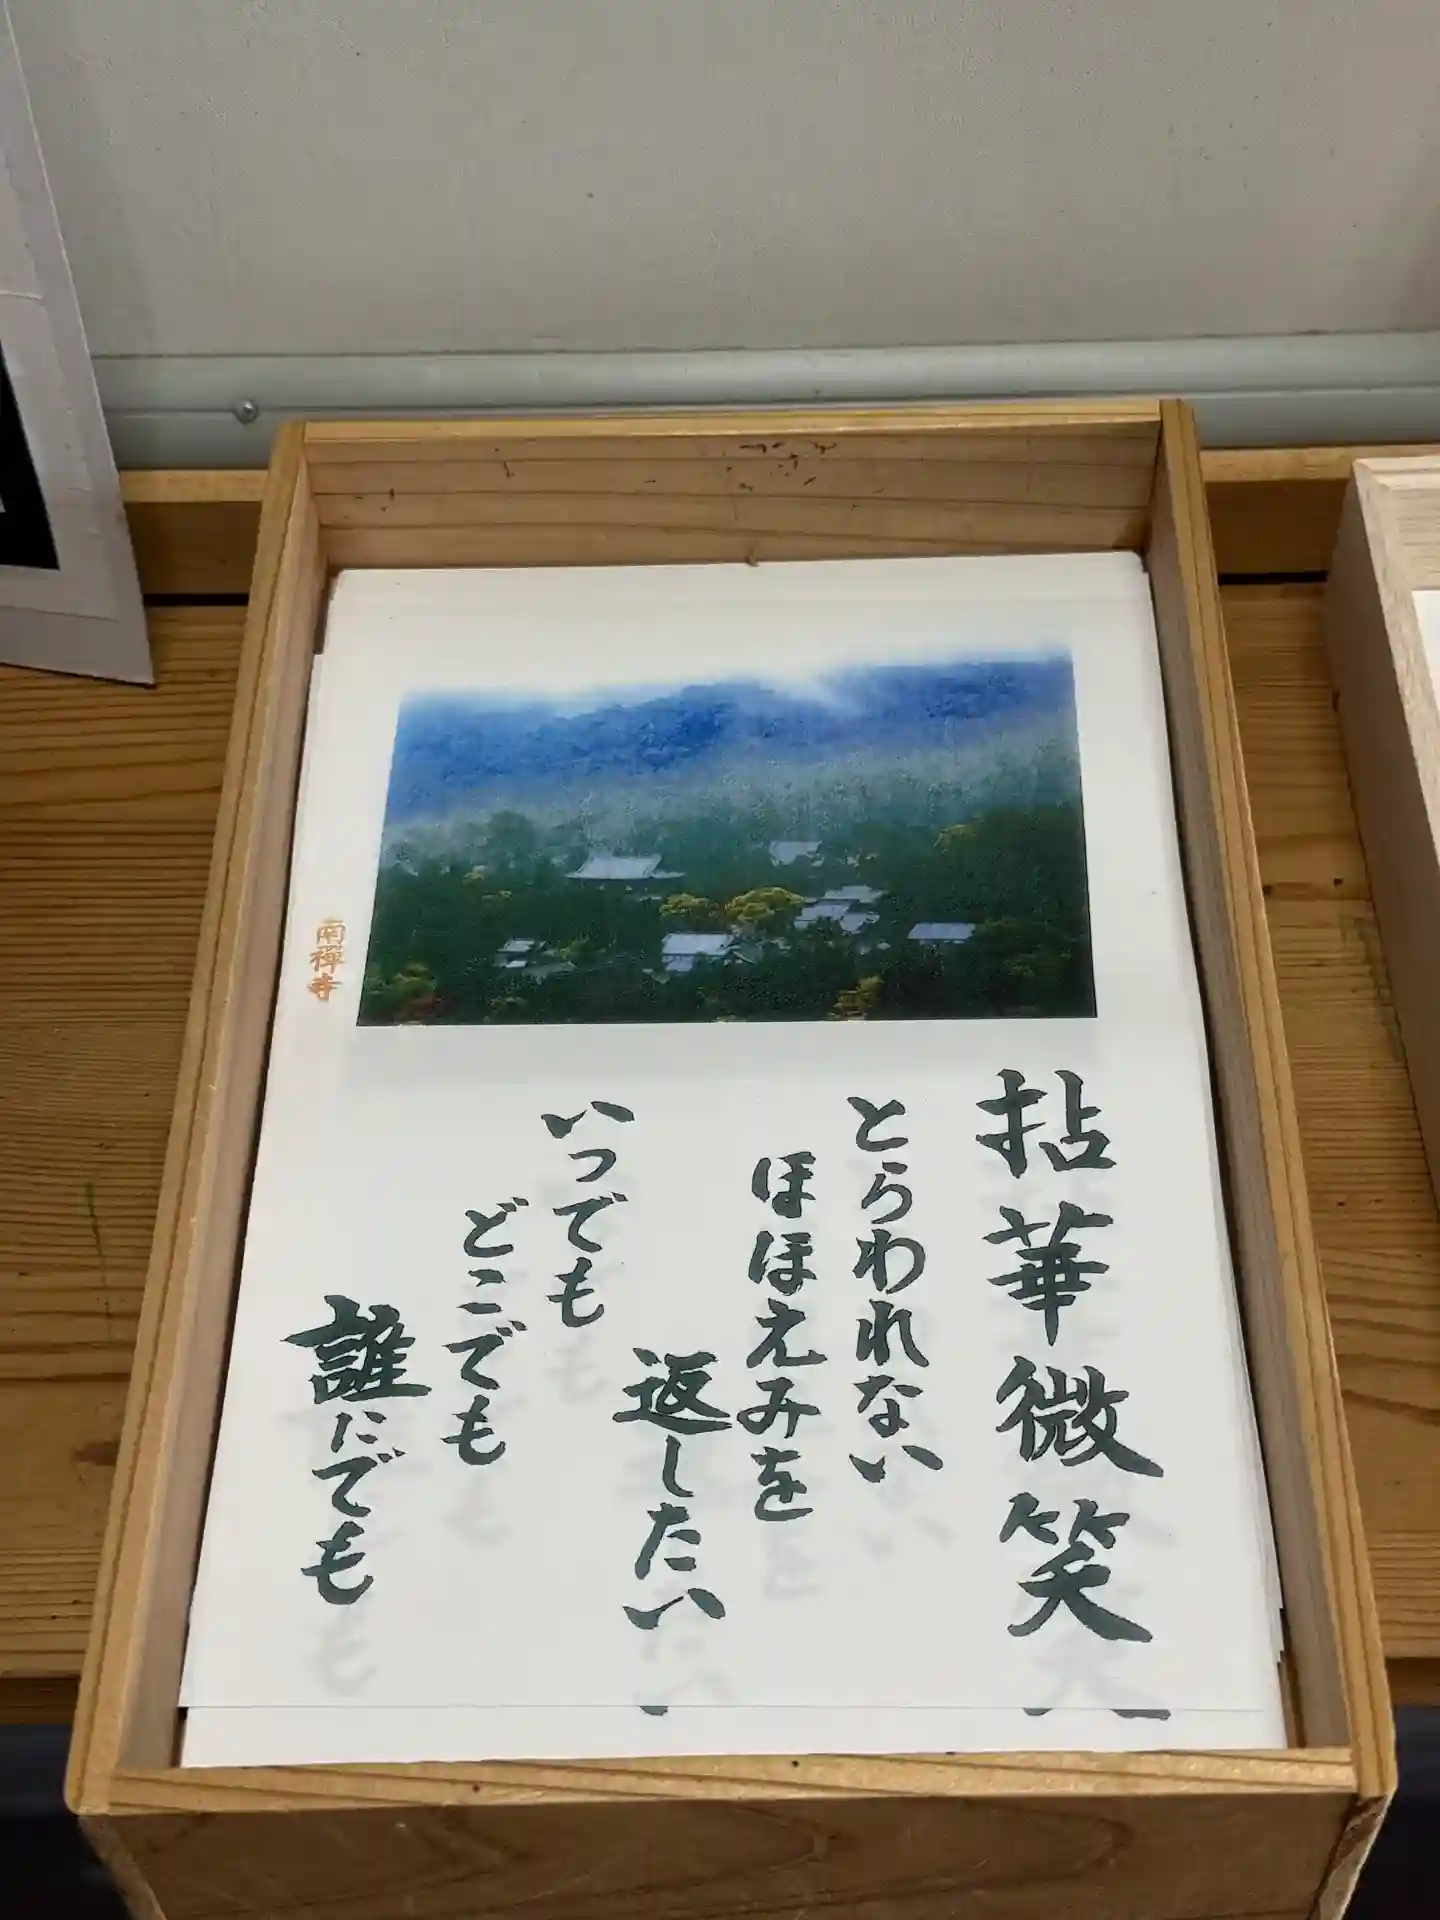 南禅寺
拈華微笑
とらわれない
ほほえみを
返したい
いつでも
どこでも
誰にでも